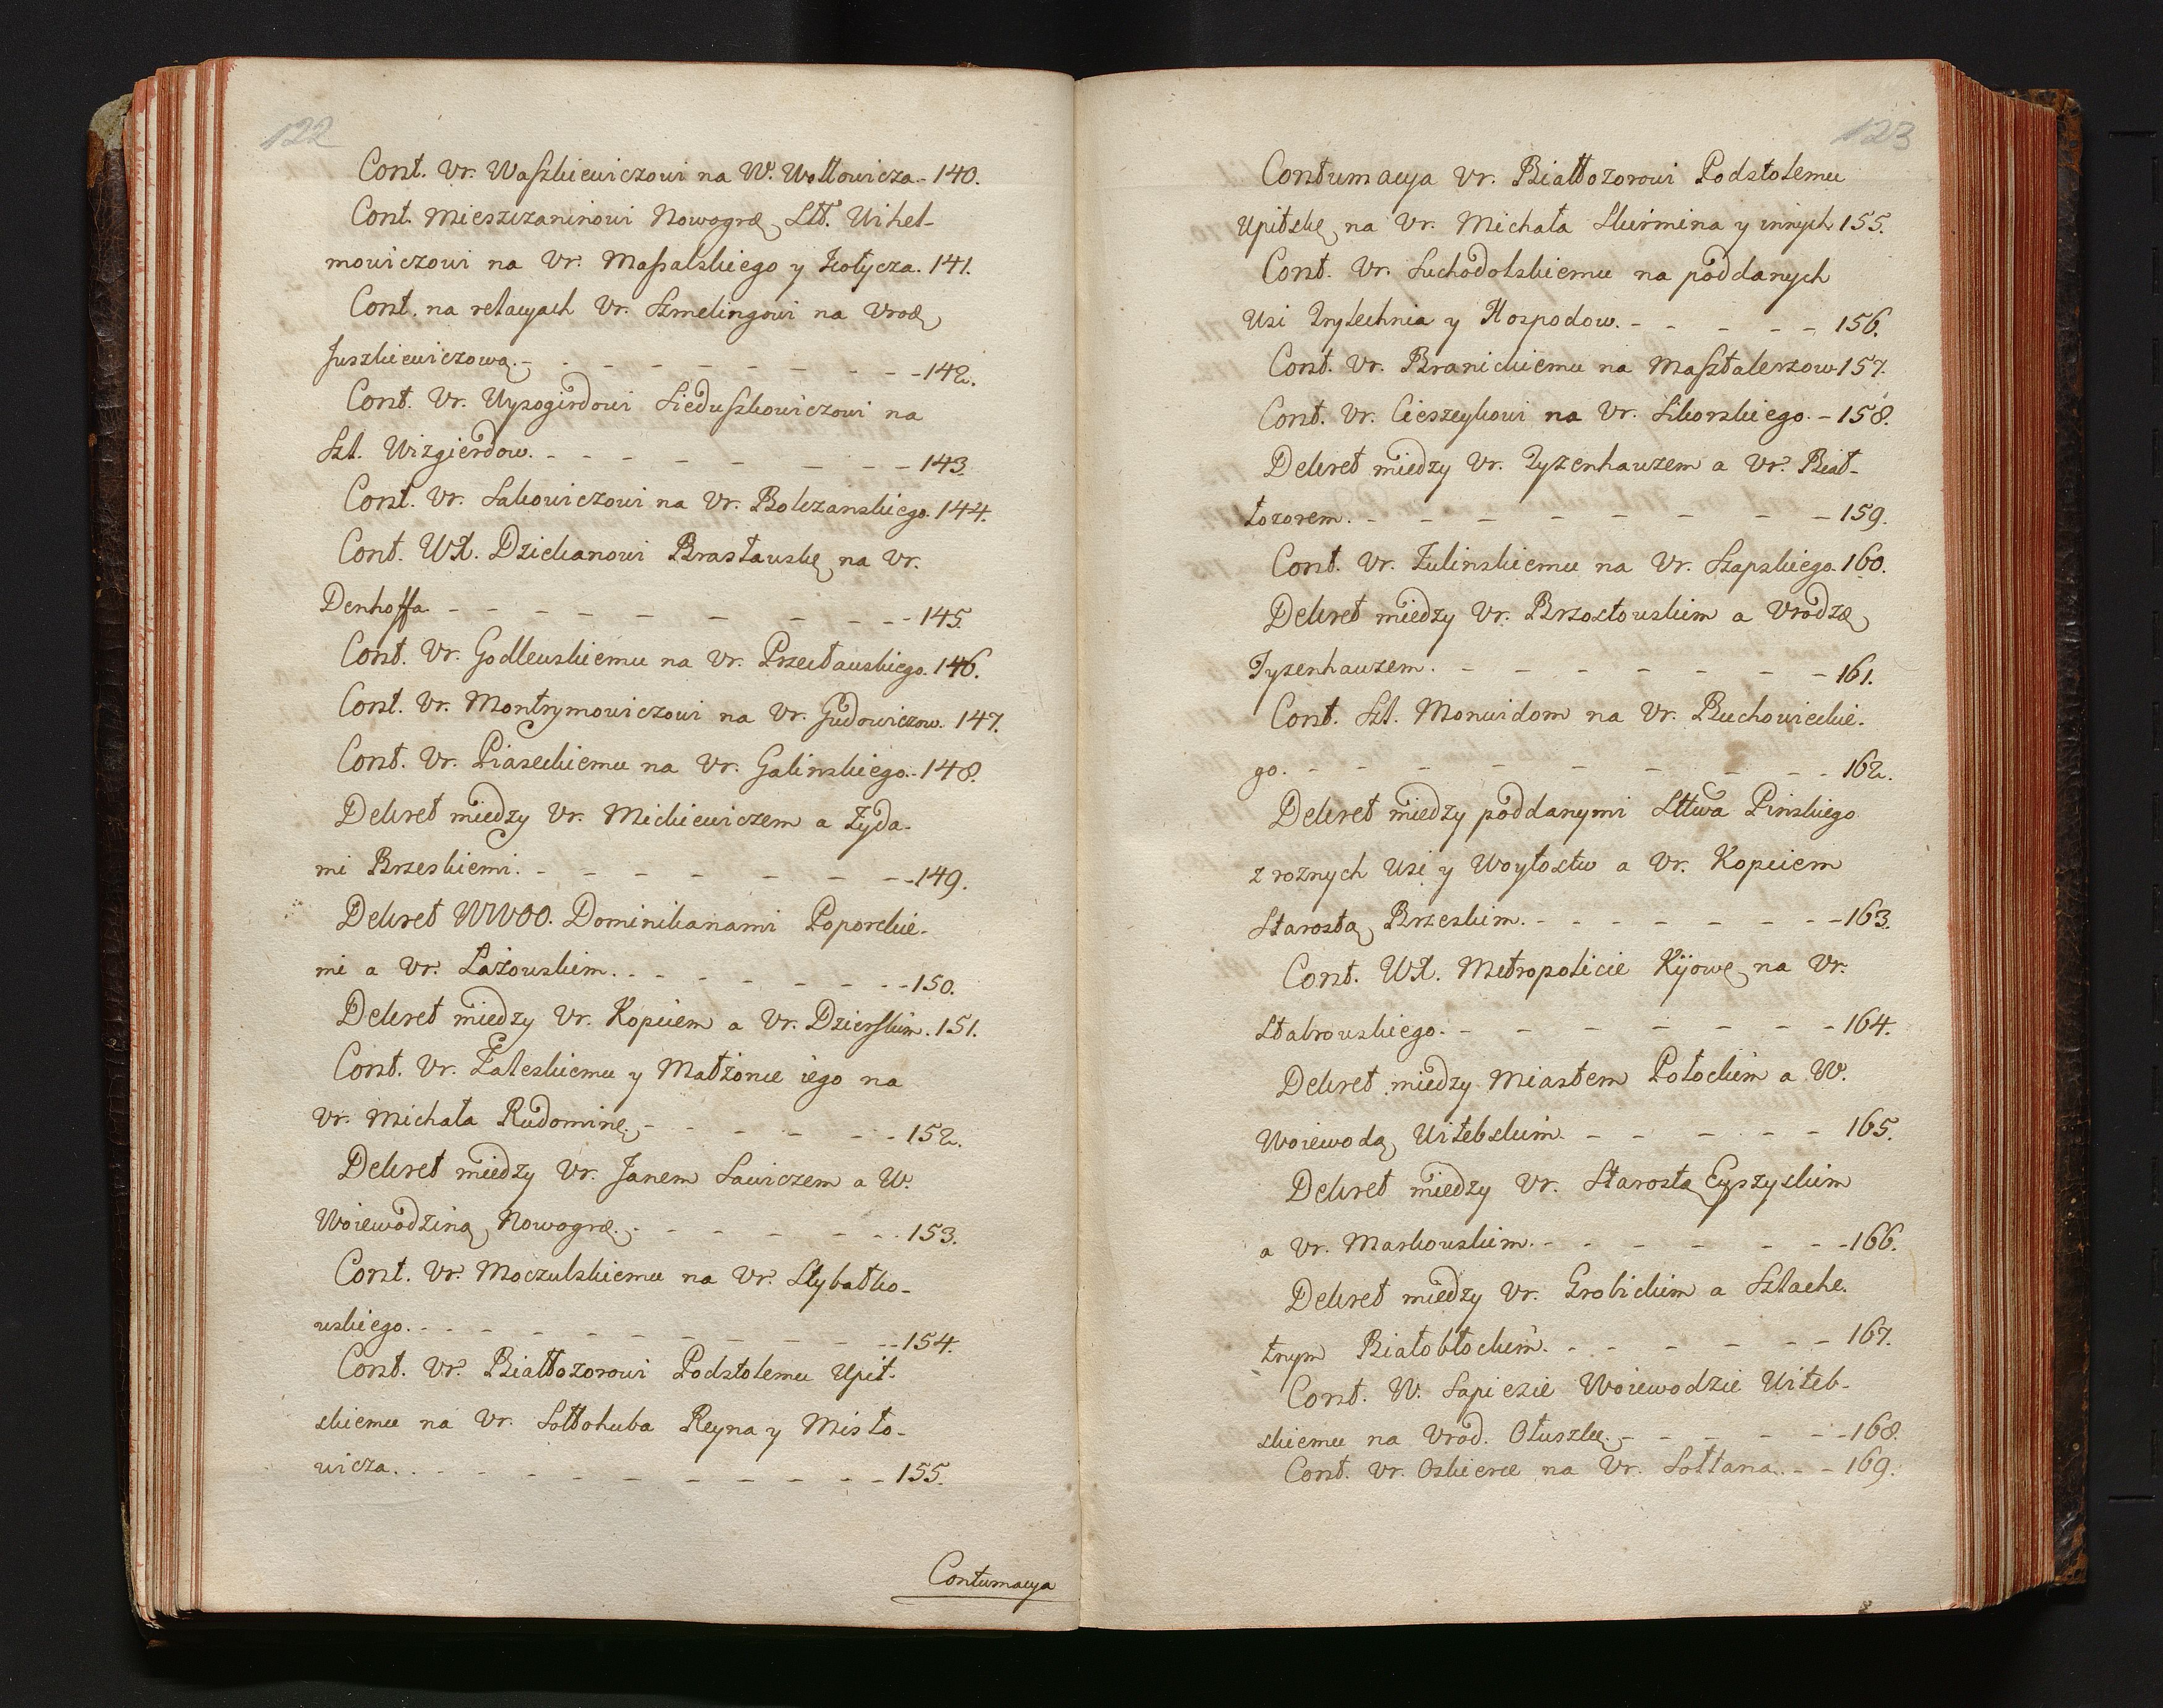 122
Cont. Ur. Waszkiewiczowi na W. Wołłowicza - 140.
Cont. Mieszczaninowi Nowogrᶒ Litt. Wihel-
mowiczowi na Ur. Massalskiego y Isotycza. 141.
Cont. na relacyach Ur. Szmelingowi na Urodᶒ
Juszkiewiczową. - - - - - - - - - 142.
Cont. Ur. Wysogirdowi Sieduszkowiczowi na
Szl. Wizgierdow. - - - - - - - - - 143.
Cont. Ur. Sakowiczowi na Ur. Bolczanskiego. 144.
Cont. WX. Dziekanowi Brasławskᶒ na Ur.
Denhoffa - - - - - - - - - 145.
Cont. Ur. Godlewskiemu na Ur. Przecławskiego. 146.
Cont. Ur. Montrymowiczowi na Ur. Gudowiczow. 147.
Cont. Ur. Piaseckiemu na Ur. Galinskiego. - 148.
Dekret miedzy Ur. Mickiewiczem a Żyda-
mi Brzeskiemi. - - - - - - - - 149.
Dekret WWOO. Dominikanami Poporckie-
mi a Ur. Łazowskim. - - - - - - - 150.
Dekret miedzy Ur. Kopciem a Ur. Dzierskim. 151.
Cont. Ur. Zaleskiemu y Małżonce iego na
Ur. Michała Rudominę. - - - - - - 152.
Dekret miedzy Ur. Janem Sawiczem a W.
Woiewodziną Nowogrᶒ. - - - - - - 153.
Cont. Ur. Moczulskiemu na Ur. Stybałko-
wskiego. - - - - - - - - - - 154.
Cont. Ur. Białłozorowi Podstolemu Upit-
skiemu na Ur. Sołłohuba Reyna y Misło-
wicza. - - - - - - - - - - 155.
Contumacya
123
Contumacya Ur. Białłozorowi Podstolemu
Upitskᶒ na Ur. Michała Skirmina y innych 155.
Cont. Ur. Suchodolskiemu na poddanych
Wsi Trylechnia y Hospodow. - - - - - 156.
Cont. Ur. Branickiemu na Masztalerzow 157.
Cont. Ur. Cieszeykowi na Ur. Sikorskiego. - 158.
Dekret miedzy Ur. Tyzenhauzem a Ur. Biał-
łozorem. - - - - - - - - 159.
Cont. Ur. Zulinskiemu na Ur. Szapskiego. 160.
Dekret miedzy Ur. Brzostowskim a Urodzᶒ
Tyzenhauzem. - - - - - - - 161.
Cont. Szl. Monwidom na Ur. Buchowieckie-
go. - - - - - - - - - 162.
Dekret miedzy poddanymi Sttwa Pinskiego
z roznych Wsi y Woytostw a Ur. Kopciem
Starostą Brzeskim. - - - - - - - 163.
Cont. WX. Metropolicie Kijowᶒ na Ur.
Stabrowskiego. - - - - - - - 164.
Dekret miedzy Miastem Połockim a W.
Woiewodą Witebskim. - - - - - 165.
Dekret miedzy Ur. Starostą Eyszyskim
a Ur. Markowskim. - - - - - - 166.
Dekret miedzy Ur. Grobickim a Szlache-
tnym Białobłockim. - - - - - - 167.
Cont. W. Sapiezie Woiewodzie Witeb-
skiemu na Urod. Otuszkę. - - - - - - 168.
Cont. Ur. Oskierce na Ur. Sołtana. - - 169.